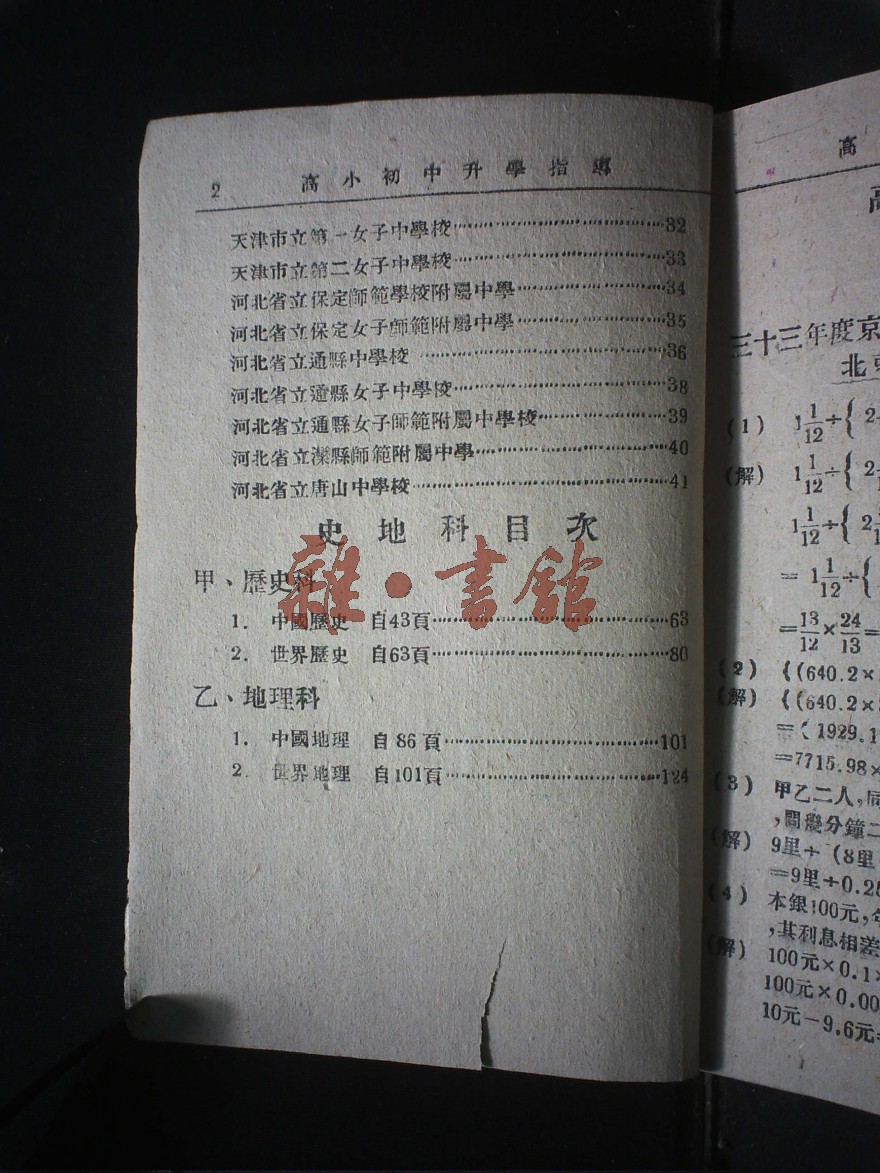 2 高小初中升學指導
天津市立第一女子中學校……32
天津市立第二女子中學校……33
河北省立保定師範學校附屬中學……34
河北省立保定女子師範附屬中學……35
河北省立通縣中學校……36
河北省立通縣女子中學校……38
河北省立通縣女子師範附屬中學校……39
河北省立灤縣師範附屬中學……40
河北省立唐山中學校……41
史地科目次
甲、歷史科
1. 中國歷史 自43頁……63
2. 世界歷史 自63頁……80
乙、地理科
1. 中國地理 自86頁……101
2. 世界地理 自101頁……124
雜·書館
高
三十三年度京
北
(1) 1 1/12 ÷{ 2
(解) 1 1/12 ÷{ 2
1 1/12 ÷{ 2
= 1 1/12 ÷{
= 13/12 × 24/13 =
(2) {(640.2×
(解) {(640.2×
=( 1929.1
=7715.98×
(3) 甲乙二人,同
,問幾分鐘二
(解) 9里÷(8里
=9里÷0.25
(4) 本銀100元,年
,其利息相差
(解) 100元×0.1×
100元×0.00
10元-9.6元=